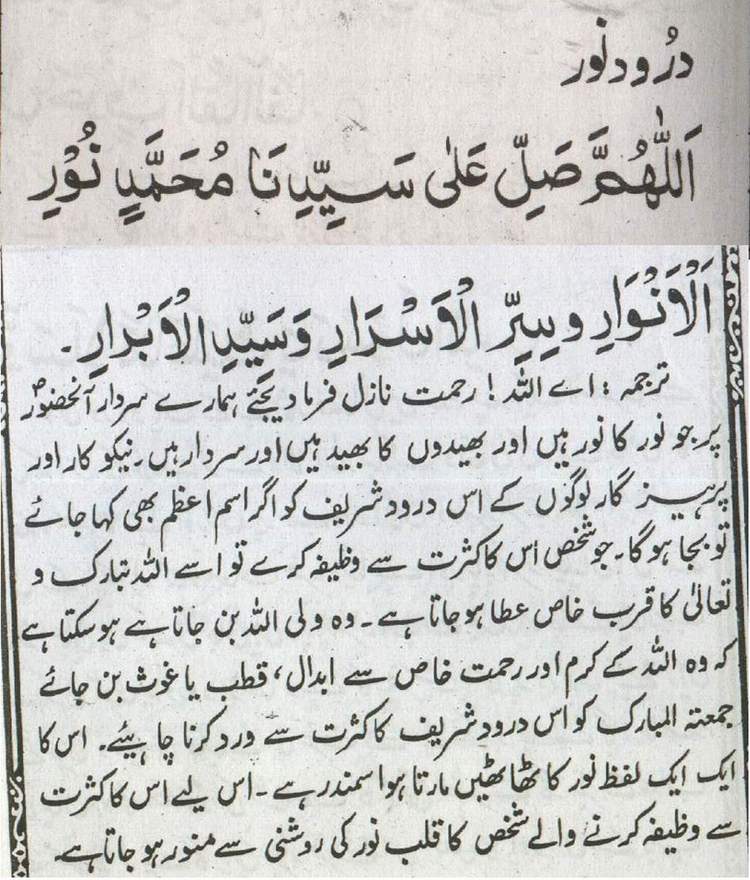 درُود نور
اَللّٰهُمَّ صَلِّ عَلٰی سَیِّدِنَا مُحَمَّدٍ نُوْرِ
اَلْاَنْوَارِ وسِرِّ الْاَسْرَارِ وَسَیِّدِ الْاَبْرَارِ۔
ترجمہ : اے اللہ ! رحمت نازل فرما دیجئے ہمارے سردار آنحضورؐ
پر جو نور کا نور ہیں اور بھیدوں کا بھید ہیں اور سردار ہیں۔ نیکو کار اور
پرہیز گار لوگوں کے اس درود شریف کو اگر اسم اعظم بھی کہا جائے
تو بجا ہو گا۔ جو شخص اس کا کثرت سے وظیفہ کرے تو اسے اللہ تبارک و
تعالیٰ کا قرب خاص عطا ہو جاتا ہے۔ وہ ولی اللہ بن جاتا ہے ہو سکتا ہے
کہ وہ اللہ کے کرم اور رحمت خاص سے ابدال، قطب یا غوث بن جائے
جمعتہ المبارک کو اس درود شریف کا کثرت سے ورد کرنا چاہیئے۔ اس کا
ایک ایک لفظ نور کا ٹھاٹھیں مارتا ہوا سمندر ہے۔ اس لیے اس کا کثرت
سے وظیفہ کرنے والے شخص کا قلب نور کی روشنی سے منور ہو جاتا ہے۔